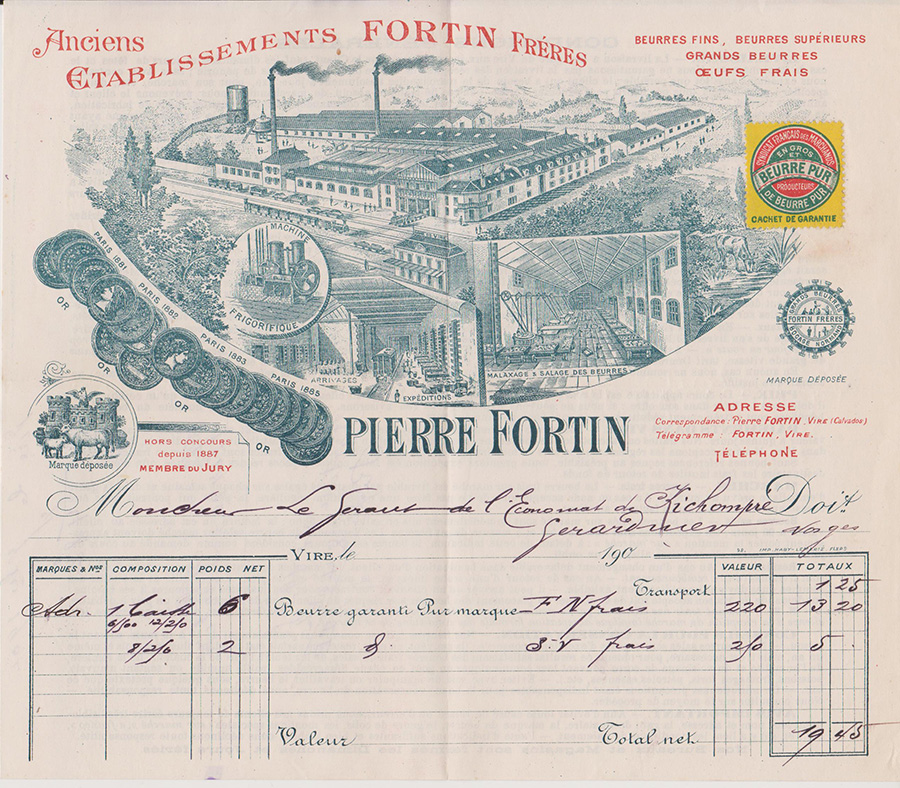 Anciens
ETABLISSEMENTS FORTIN FRÉRES
BEURRES FINS, BEURRES SUPÉRIEURS
GRANDS BEURRES
ŒUFS FRAIS
SYNDICAT FRANÇAIS DES MARCHANDS
EN GROS
ET
BEURRE PUR
PRODUCTEURS
DE BEURRE PUR
CACHET DE GARANTIE
MACHINE
FRIGORIFIQUE
PARIS 1881
OR
PARIS 1882
OR
PARIS 1883
OR
PARIS 1885
OR
ARRIVAGES
EXPÉDITIONS
MALAXAGE & SALAGE DES BEURRES
GRANDS BEURRES
FORTIN FRÈRES
MARQUE DÉPOSÉE
Marque déposée
HORS CONCOURS
depuis 1887
MEMBRE DU JURY
PIERRE FORTIN
ADRESSE
Correspondance: Pierre FORTIN, VIRE (Calvados)
Télégramme: FORTIN, VIRE.
TÉLÉPHONE
Monsieur Le Gerant de l'Economat de Kichompré Doit
Gerardmer Vosges
VIRE, le 190
MARQUES & Nos COMPOSITION POIDS NET VALEUR TOTAUX
Transport 1 25
Adr. 1 Caisse 6 Beurre garanti Pur marque F N frais 220 13 20
6/500 12/250
8/250 2 d. S.V frais 2/50 5
Valeur Total net 19 45